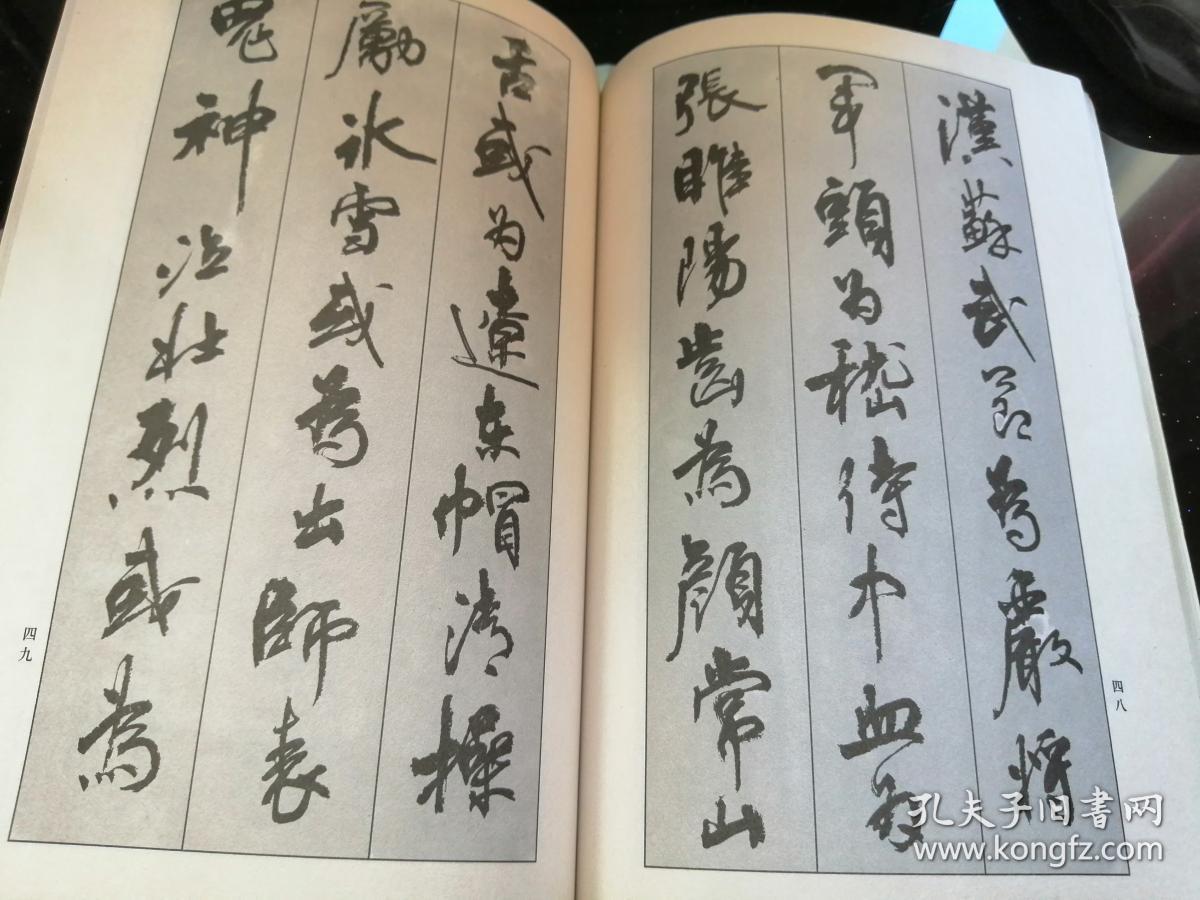 漢蘇武節為嚴將
軍頭为嵇侍中血為
張睢陽齒為顏常山
四八
舌或为遼東帽清操
勵冰雪或為出師表
鬼神泣壯烈或為
四九
孔夫子旧書网
www.kongfz.com